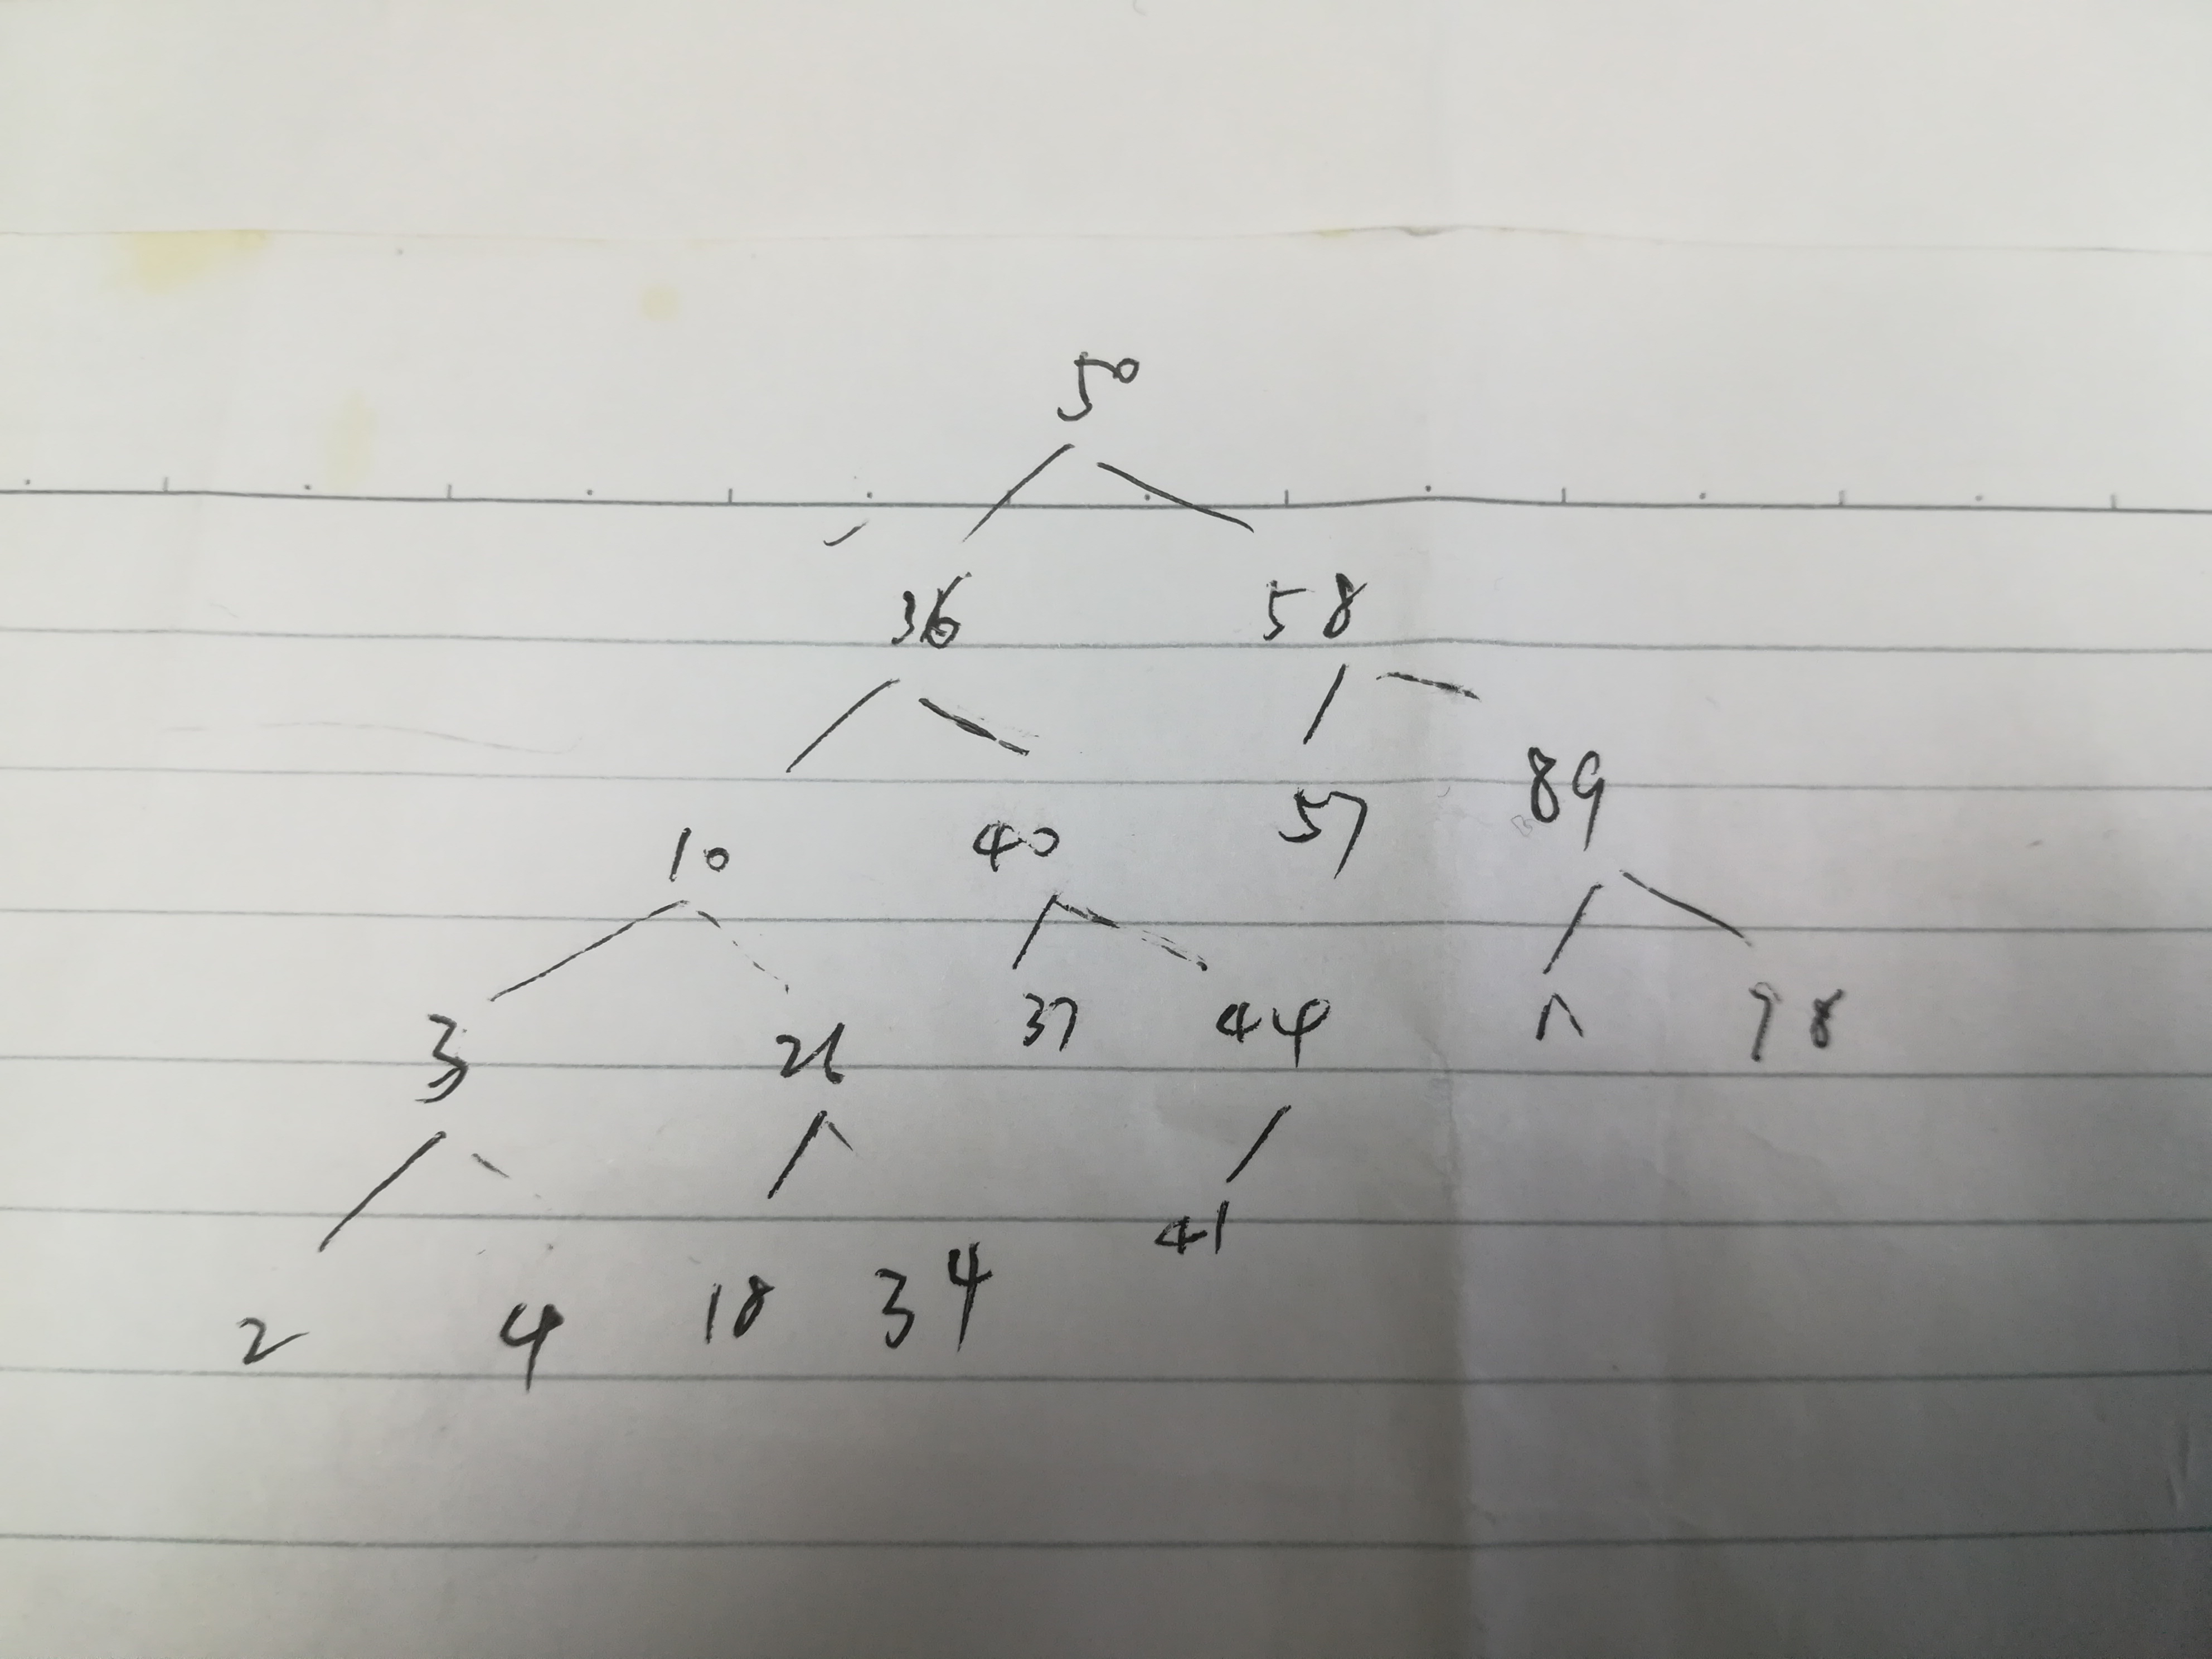 50
36 58
10 40 57 89
3 26 37 44 98
2 4 18 34 41